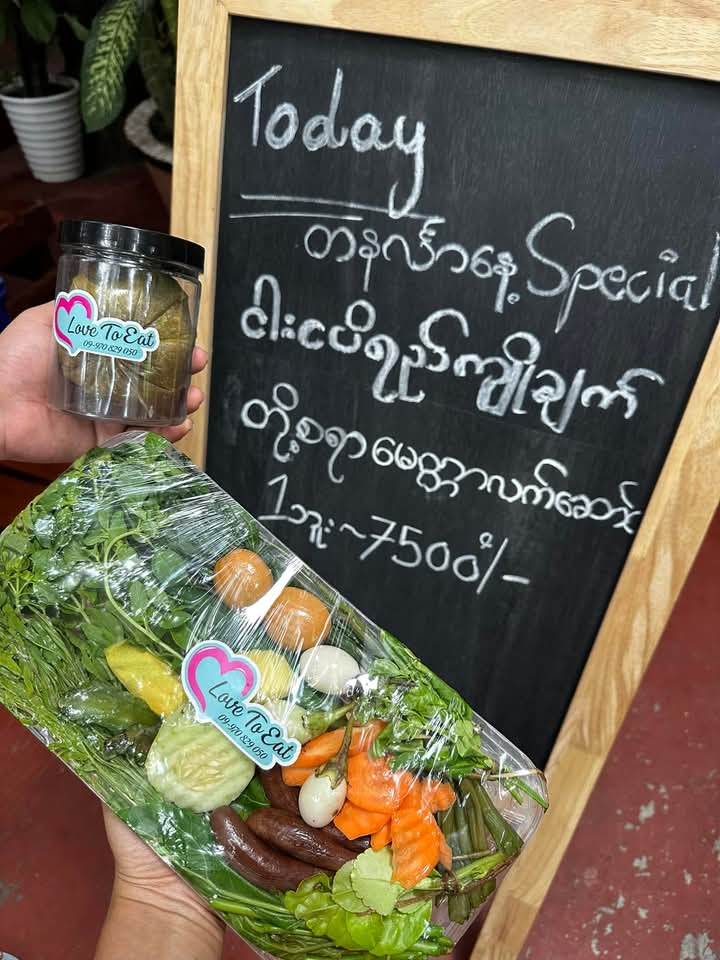 Today
တနင်္လာနေ့ Special
ငါးငပိရည်ကျိုချက်
တို့စရာ မေတ္တာလက်ဆောင်
1ဘူး ~ 7500 ိ/-
Love To Eat
09-970 829 050
Love To Eat
09-970 829 050